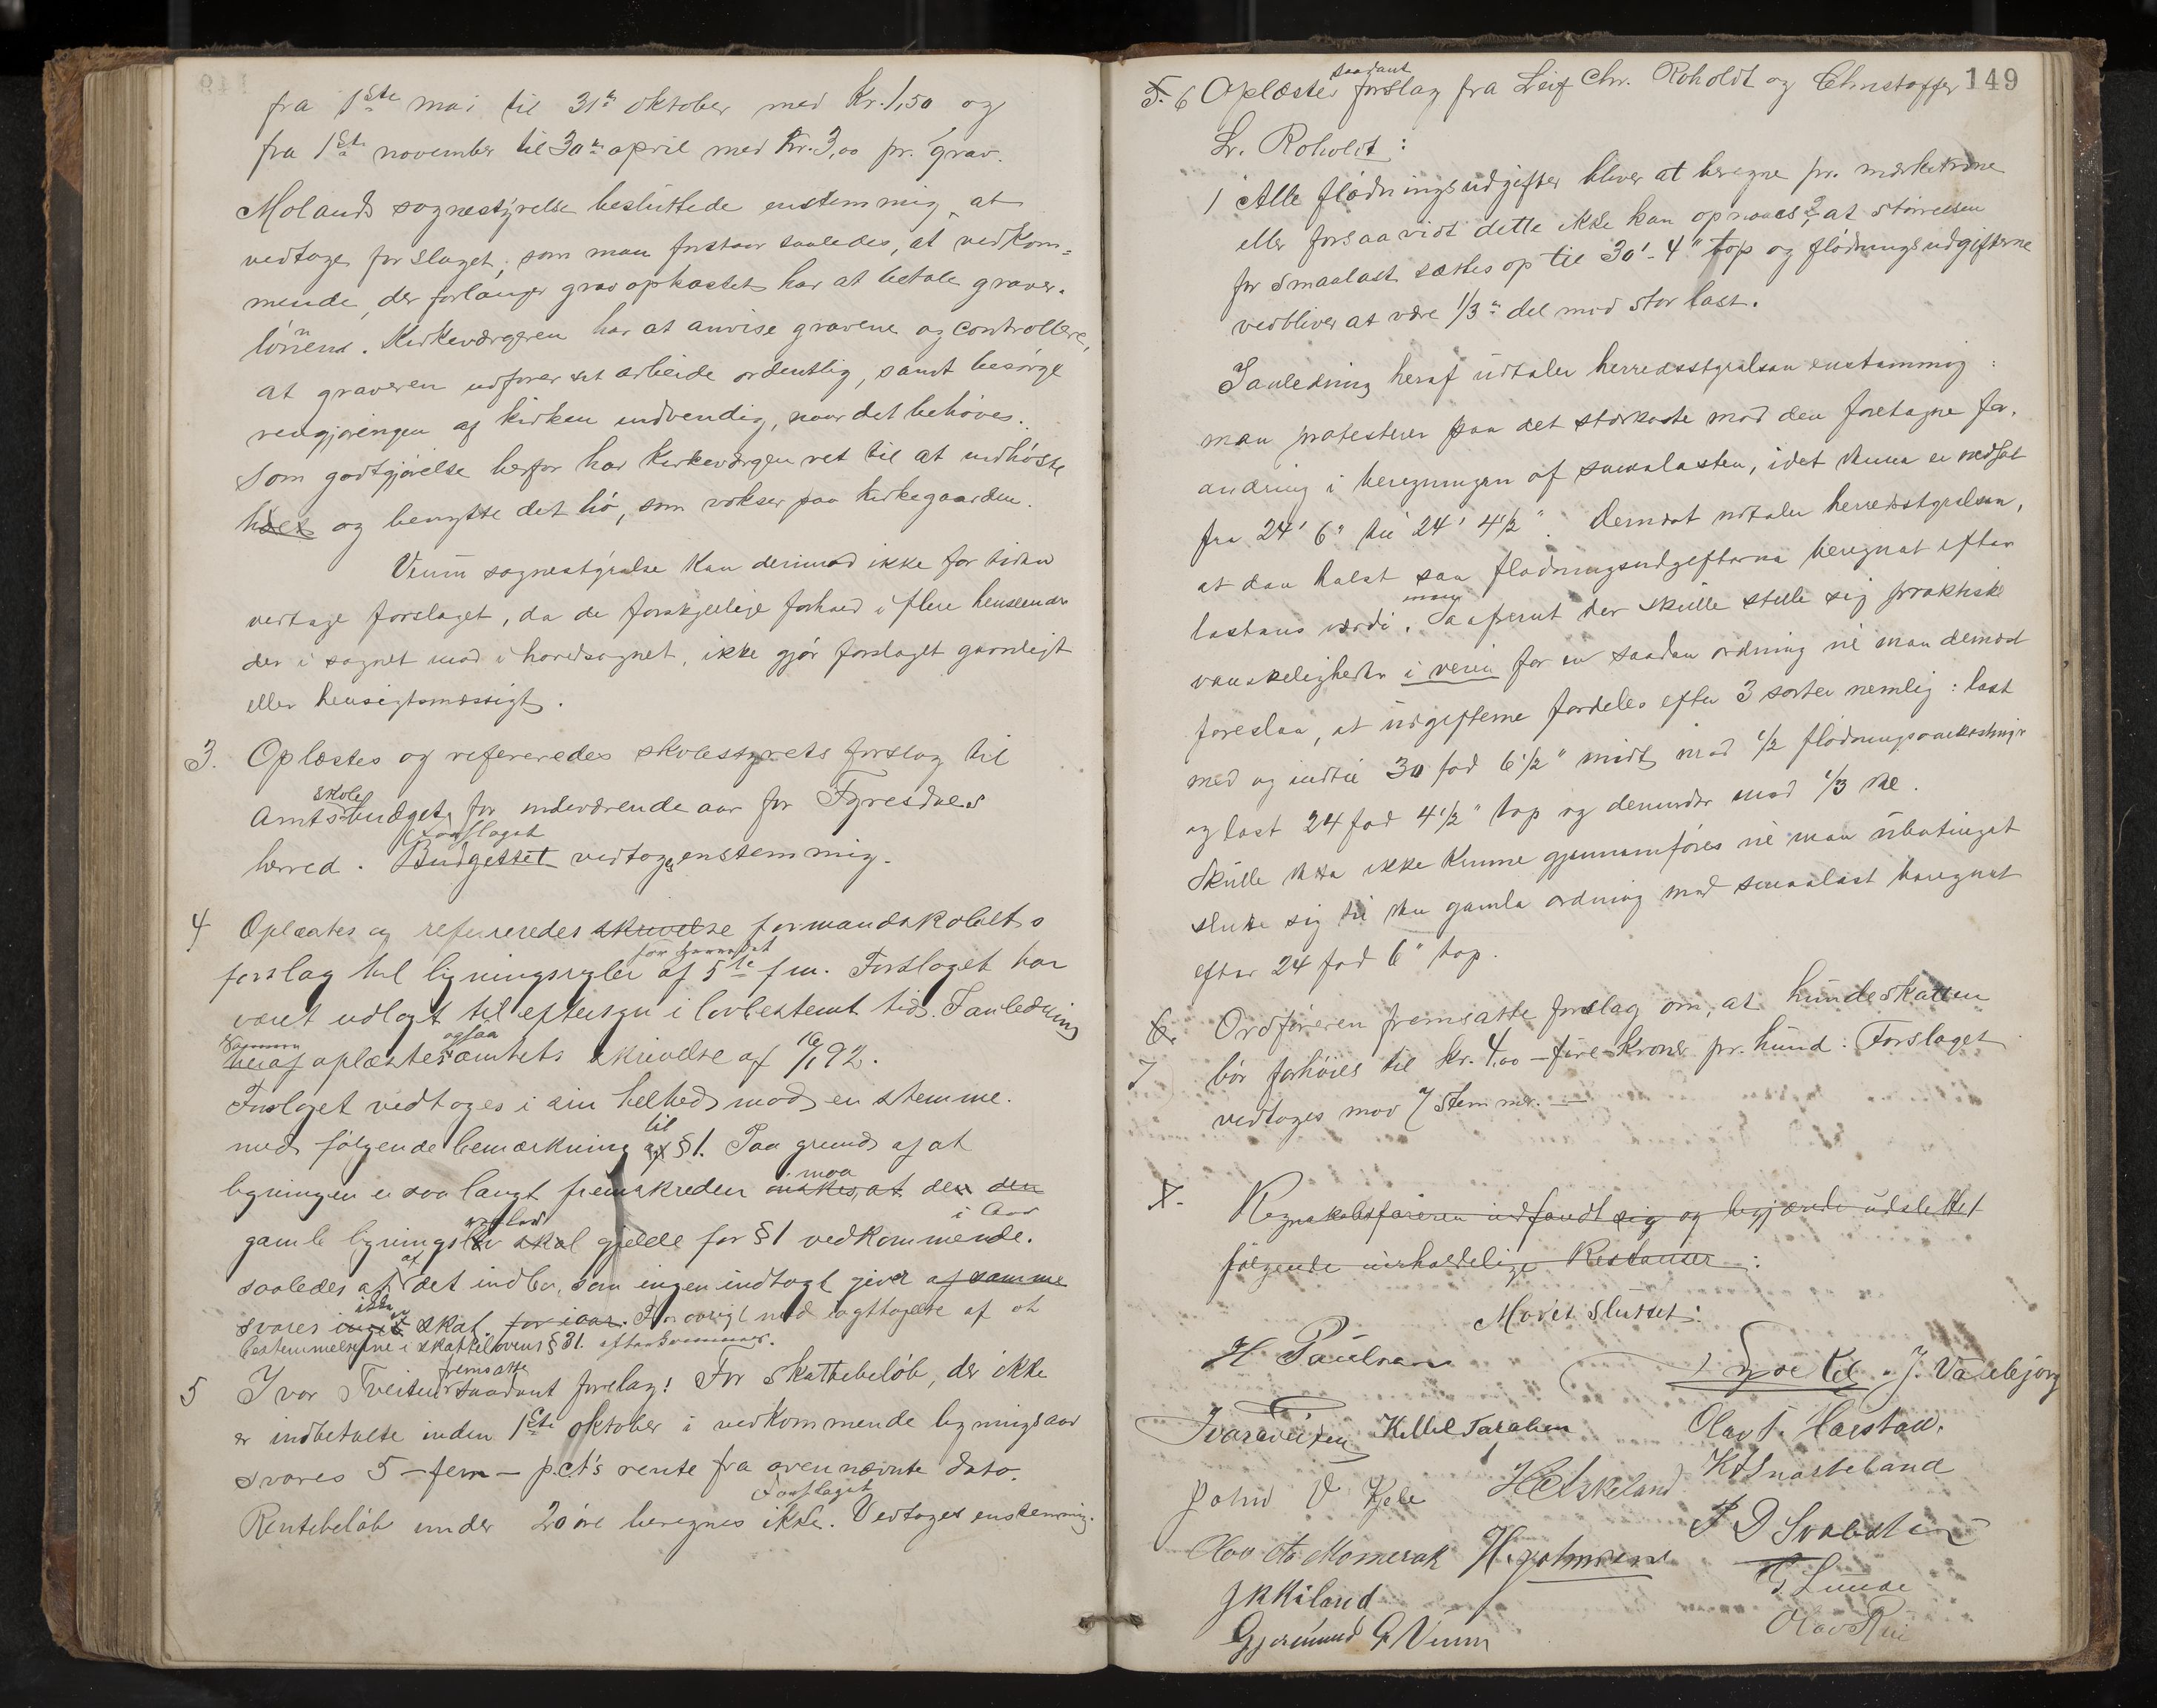 fra 1ste mai til 31te oktober med Kr. 1,50 og
fra 1ste november til 30te april med Kr. 3,00 pr. grav.
Molands sognestyrelse besluttede enstemmig at
vedtage forslaget, som man forstaar saaledes, at vedkom=
mende, der forlanger grav opkastet har at betale graver-
lönnen. Kirkeværgeren har at anvise gravene og controllere,
at graveren udfører sit arbeide ordentlig, samt besörge
rengjøringen af kirken indvendig, naar det behöves.
Som godtgjörelse herfor har Kirkeværgen ret til at indhöste
og benytte det hö, som vokser paa Kirkegaarden.
Veum sognestyrelse kan derimod ikke for tiden
vedtage forslaget, da de forskjellige forhold i flere henseender
der i sognet mod i hovedsognet, ikke gjör forslaget gavnligt
eller hensigtsmæssigt.
3. Oplæstes og refereredes skolestyrets forslag til
skole
Amtsbudget for indeværende aar for Fyresdals
Forslaget
herred. Budgettet vedtoges enstemmig.
4 Oplæstes og refereredes skrivelse formandskabets
for herredet
forslag til ligningsregler af 5te fm. Forslaget har
været udlagt til eftersyn i lovbestemt tid. I anledning
ogsaa
heraf oplæstes amtets skrivelse af 92.
Forslaget vedtoges i sin helhed mod en stemme.
til
med følgende bemærkning af § 1. Paa grund af at
maa
ligningen er saa langt fremskreden önskes, at den den
i Aar
gamle ligningslov skal gjelde for § 1 vedkommende.
af
saaledes at det indbo, som ingen indtægt giver af samme
ikke
svares inget skat. for iaar. Forövrigt med iagttagelse af at
bestemmelserne i skattelovens § 31. efterkommes.
fremsatte
5 Ivar Tveiten saadant forslag! For Skattebelöb, der ikke
er indbetalte inden 1ste oktober i vedkommende ligningsaar
svares 5 - fem - p.ct's rente fra ovennævnte dato.
Forslaget
Rentebelöb under 20 öre beregnes ikke. Vedtoges enstemmig.
149
saadant
5. 6 Oplæstes forslag fra Leif Chr. Roholdt og Christoffer
Lr. Roholdt:
1 Alle flödningsudgifter bliver at beregne pr. mærketvone
eller forsaavidt dette ikke kan opnaaes 2, at Størrelsen
for Smaalast sættes op til 30' - 4" top og flödningsudgifterne
vedbliver at være 1/3 del mod Storlast.
I anledning heraf udtaler herredsstyrelsen enstemmig:
man protesterer paa det stærkeste mod den foretagne for-
andring i beregningen af smaalasten, idet denne er nedsat
fra 24' 6" til 24' 4 1/2". Dernæst udtaler herredsstyrelsen,
at den helst saa flødningsudgifterne beregnet efter
lastens værdi. Saafremt der skulle stille sig praktiske
vanskeligheder i veien for en saadan ordning vil man dernæst
foreslaa, at udgifterne fordeles efter 3 sorter nemlig: last
med og indtil 30 fod 6 1/2" midt, mod 1/2 flödningsomkostninger
og last 24 fod 4 1/2" top og derunder mod 1/3 del.
Skulle dette ikke kunne gjennemføres vil man ubetinget
slutte sig til den gamle ordning med smaalast beregnet
efter 24 fod 6" top.
6. Ordföreren fremsatte forslag om, at hundeskatten
7 bör forhöies til kr. 4,00 - fire Kroner pr. hund. Forslaget
vedtoges mod 7 Stemmer. —
X. Regnskabsføreren indfandt sig og begjærede udslettet
følgende uerholdelige Restancer:
Mødet sluttet.
H Paulsen
J. Vasebjorg
Ivar Tveiten Kittel Taraldsen Olav T. Hærstad.
John V Kyle H Askeland K A Snarteland
Olav Momerak H. Johnsen P D Svalestu
J K Kiland T. Lunde
Gjermund G Veum Olav Rui